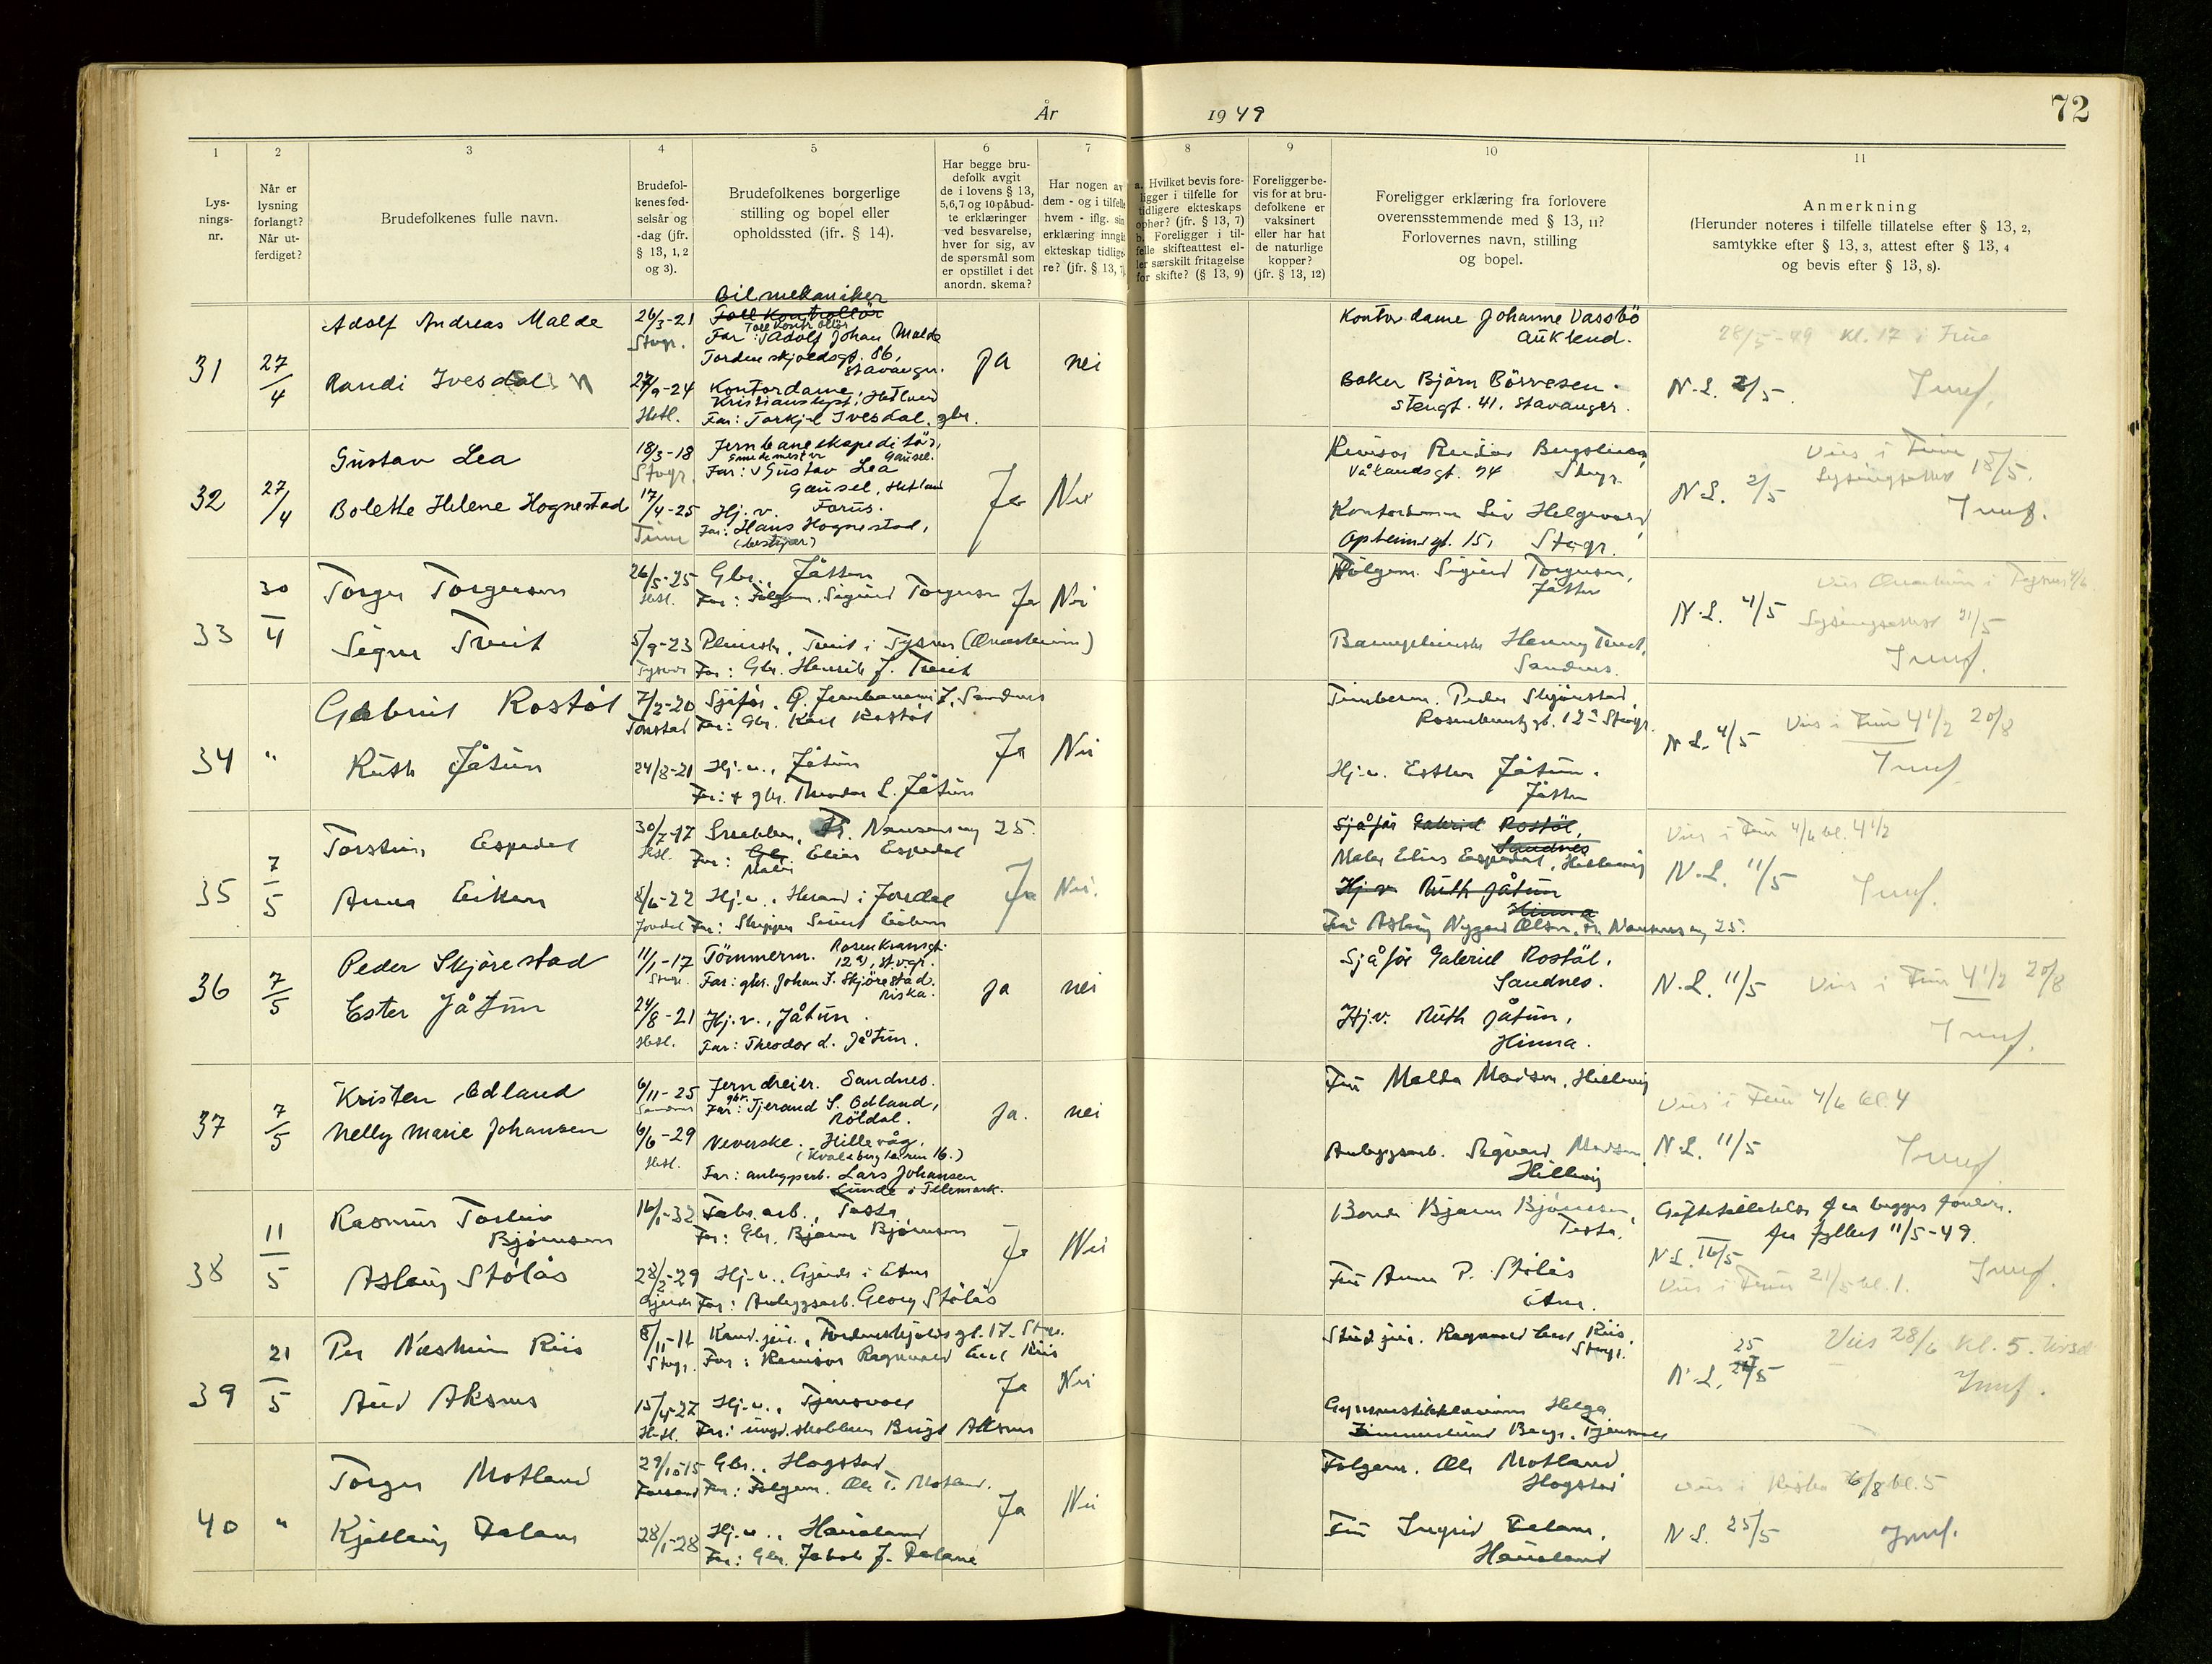 År 1949
72
1
2
3
4
5
6
7
8
9
10
11
Lys-
nings-
nr.
Når er
lysning
forlangt?
Når ut-
ferdiget?
Brudefolkenes fulle navn.
Brudefol-
kenes fød-
selsår og
-dag (jfr.
§ 13, 1, 2
og 3).
Brudefolkenes borgerlige
stilling og bopel eller
opholdssted (jfr. § 14).
Har begge bru-
defolk avgit
de i lovens § 13,
5,6,7 og 10 påbud-
te erklæringer
ved besvarelse,
hver for sig, av
de spørsmål som
er opstillet i det
anordn. skema?
Har nogen av
dem - og i tilfelle
hvem - iflg. sin
erklæring inngå
ekteskap tidlige-
re? (jfr. § 13, 7)
a. Hvilket bevis fore-
ligger i tilfelle for
tidligere ekteskaps
ophør? (jfr. § 13, 7)
b. Foreligger i til-
felle skifteattest el-
ler særskilt fritagelse
for skifte? (§ 13, 9)
Foreligger be-
vis for at bru-
defolkene er
vaksinert
eller har hat
de naturlige
kopper?
(jfr. § 13, 12)
Foreligger erklæring fra forlovere
overensstemmende med § 13, 11?
Forlovernes navn, stilling
og bopel.
Anmerkning
(Herunder noteres i tilfelle tillatelse efter § 13, 2,
samtykke efter § 13, 3, attest efter § 13, 4
og bevis efter § 13, 8).
31
27/4
Adolf Andreas Malde
Randi Ivesdal
26/3-21
Stvgr.
27/9-24
Hetl.
Bilmekaniker
Tollkontrollør
Tollkontrollør
Far: Adolf Johan Malde
Tordenskjoldsgt. 86,
Stavanger.
Kontordame,
Kristianslyst, Hetland
Far: Torkjel Ivesdal, gbr.
Ja
nei
Kontordame Johanne Vassbø
Auklend.
Baker Bjørn Børresen.
Stengt. 41, Stavanger.
28/5-49 kl. 17 i Frue
N.L. 2/5.
32
27/4
Gustav Lea
Bolette Helene Hognestad
18/3-18
Stvgr.
17/4-25
Time
Jernbaneekspeditør,
Gausel.
Smedmester
Far: Gustav Lea
Gausel, Hetland
Hj.v. Forus.
Far: Hans Hognestad,
(bestyrer)
Ja
Nei
Revisor Reidar
Våkandsgt. 74 Stvgr.
Kontordame Liv
15, Stvgr.
N.L. 2/5
Vies i
18/5.
33
30/4
Torger Torgersen
Signe Tveit
26/5-25
Hetl.
5/9-23
Tysvær
Gbr., Jåtten
Far: Følgem. Sigurd Torgersen
Pleiersk., Tveit i Tysvær
Far: Gbr. Henrik J. Tveit
Ja
Nei
Følgem. Sigurd Torgersen,
Jåtten
Henny Tveit,
Sandnes.
N.L. 4/5
21/5
34
"
Gabriel Rostøl
Ruth Jåtun
7/2-20
24/8-21
Sjåfør, Sandnes
Far: Gbr. Karl Rostøl
Hj.v., Jåtun
Far: + gbr. Theodor L. Jåtun
Ja
Nei
Tømberm. Peder Skjørestad,
12a Stvgr.
Hj.v. Esther Jåtun.
Jåtten
N.L. 4/5
Vies i 4 1/2 20/8
35
7/5
Torstein Espedal
Anna Eiken
30/7-17
Hetl.
8/6-22
Jondal
Snekker, Fr. Nansensveg 25.
Far: Gbr. Elias Espedal
Maler
Hj.v., Herand i Jondal
Far: Skipper
Ja
Nei.
Sjåfør Gabriel Rostøl,
Sandnes
Maler Elias Espedal, Hillevåg
Hj.v. Ruth Jåtun
Hinna
Fru Aslaug Nygård Olsen, Fr. Nansensveg 25.
Vies i 4/6 kl. 4 1/2
N.L. 11/5
36
7/5
Peder Skjørestad
Ester Jåtun
11/1-17
Stvgr.
24/8-21
Hetl.
Tømmerm. Rosenkransgt.
12a, Stvgr.
Far: gbr. Johan T. Skjørestad.
Riska.
Hj.v., Jåtun.
Far: Theodor L. Jåtun.
Ja
nei
Sjåfør Gabriel Rostøl,
Sandnes.
Hj.v. Ruth Jåtun,
Hinna.
N.L. 11/5
Vies i 4 1/2 20/8
37
7/5
Kristen Odland
Nelly Marie Johansen
6/11-25
Sandnes
6/6-29
Hetl.
Jerndreier. Sandnes.
gbr.
Far: Tjerand S. Odland,
Røldal.
Veverske. Hillevåg.
(Kvalebergterren 16.)
Far: anleggsarb. Lars Johansen
Lunde i Telemark.
Ja.
nei
Fru Malda Madsen, Hillevåg
Anleggsarb. Sigvard Madsen
Hillevåg
Vies i 4/6 kl. 4
N.L. 11/5
38
11/5
Rasmus Torleiv
Bjørnsen
Aslaug Stølås
16/1-32
28/2-29
Gjerde
Fabr.arb., Tasta
Far: Gbr. Bjarne Bjørnsen
Hj.v., Gjerde i Etne
Far: Anleggsarb. Georg Stølås
Ja
Nei
Bonde Bjarne Bjørnsen,
Tasta.
Fru Anna P. Stølås
Etne.
Giftetillatelse fra begges foreldre.
11/5-49.
N.L. 16/5
Vies i 21/5 kl. 1.
39
21/5
Per Næsheim Riis
Aud Aksnes
8/11-1
Stvgr.
15/4-27
Hetl.
Kand. jur., Tordenskjoldsgt. 17. Stvgr.
Far: Revisor Ragnvald Emil Riis
Hj.v., Tjensvoll
Far: Aksnes
Ja
Nei
Stud. jur. Ragnvald Emil Riis,
Stvgr.
Gymnastikklærerinne Helga
Berge, Tjensvoll
25
N.L. 24/5
Vies 28/6 kl. 5.
40
"
Torger Motland
Kjellaug Dalane
29/10-15
Forsand
28/1-28
Gbr., Hogstad
Far: Følgem. Ole T. Motland.
Hj.v., Haueland
Far: Gbr. Jakob J. Dalane
Ja
Nei
Følgem. Ole Motland
Hogstad
Fru Ingrid Dalane,
Haueland
Vies i Riska 6/8 kl. 5
N.L. 25/5